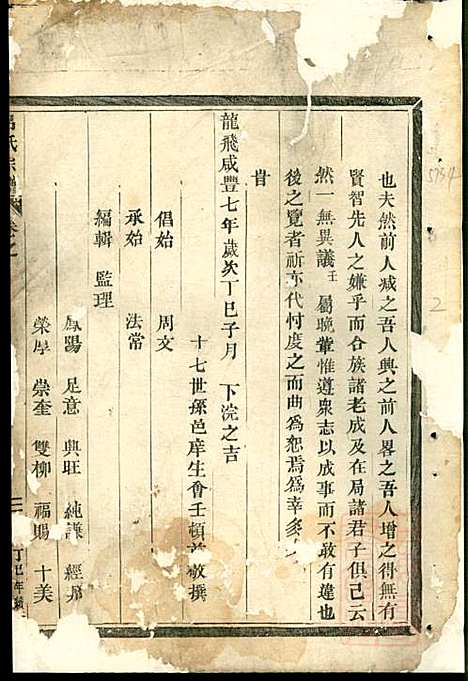 也夫然前人减之吾人興之前人畧之吾人增之得無有
賢智先人之嫌乎而合族諸老成及在局諸君子俱已云
然一無異議壬屬晚輩惟遵衆志以成事而不敢有違也
後之覽者祈亦代忖度之而曲為恕焉為幸多
旹
龍飛咸豐七年歲次丁巳子月 下浣之吉
十七世孫邑庠生會壬頓首敬撰
倡始 周文
承始 法常
編輯 監理
鳳陽 足意 興旺 純謙 經
榮厚 崇奎 雙柳 福賜 十美
氏宗譜 卷之一
丁巳年續
5934
2